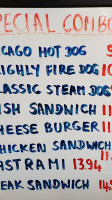 SPECIAL COMBO
CAGO HOT DOG
IGHLY FIRE DOG 10
LASSIC STEAM DOG
ISH SANDWICH 11
HEESE BURGER 11
HICKEN SANDWICH
ASTRAMI 13.94
EAK SANDWICH 14.